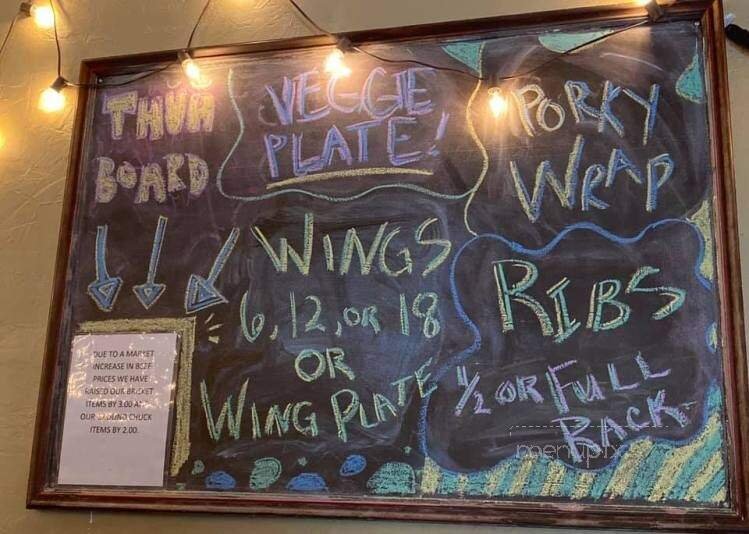 THUH
BOARD
VEGGIE
PLATE!
PORKY
WRAP
WINGS
6, 12, OR 18
OR
WING PLATE
RIBS
1/2 OR FULL
RACK
DUE TO A MARKET
INCREASE IN BEEF
PRICES WE HAVE
RAISED OUR BRISKET
ITEMS BY 3.00 AND
OUR GROUND CHUCK
ITEMS BY 2.00.
menupix